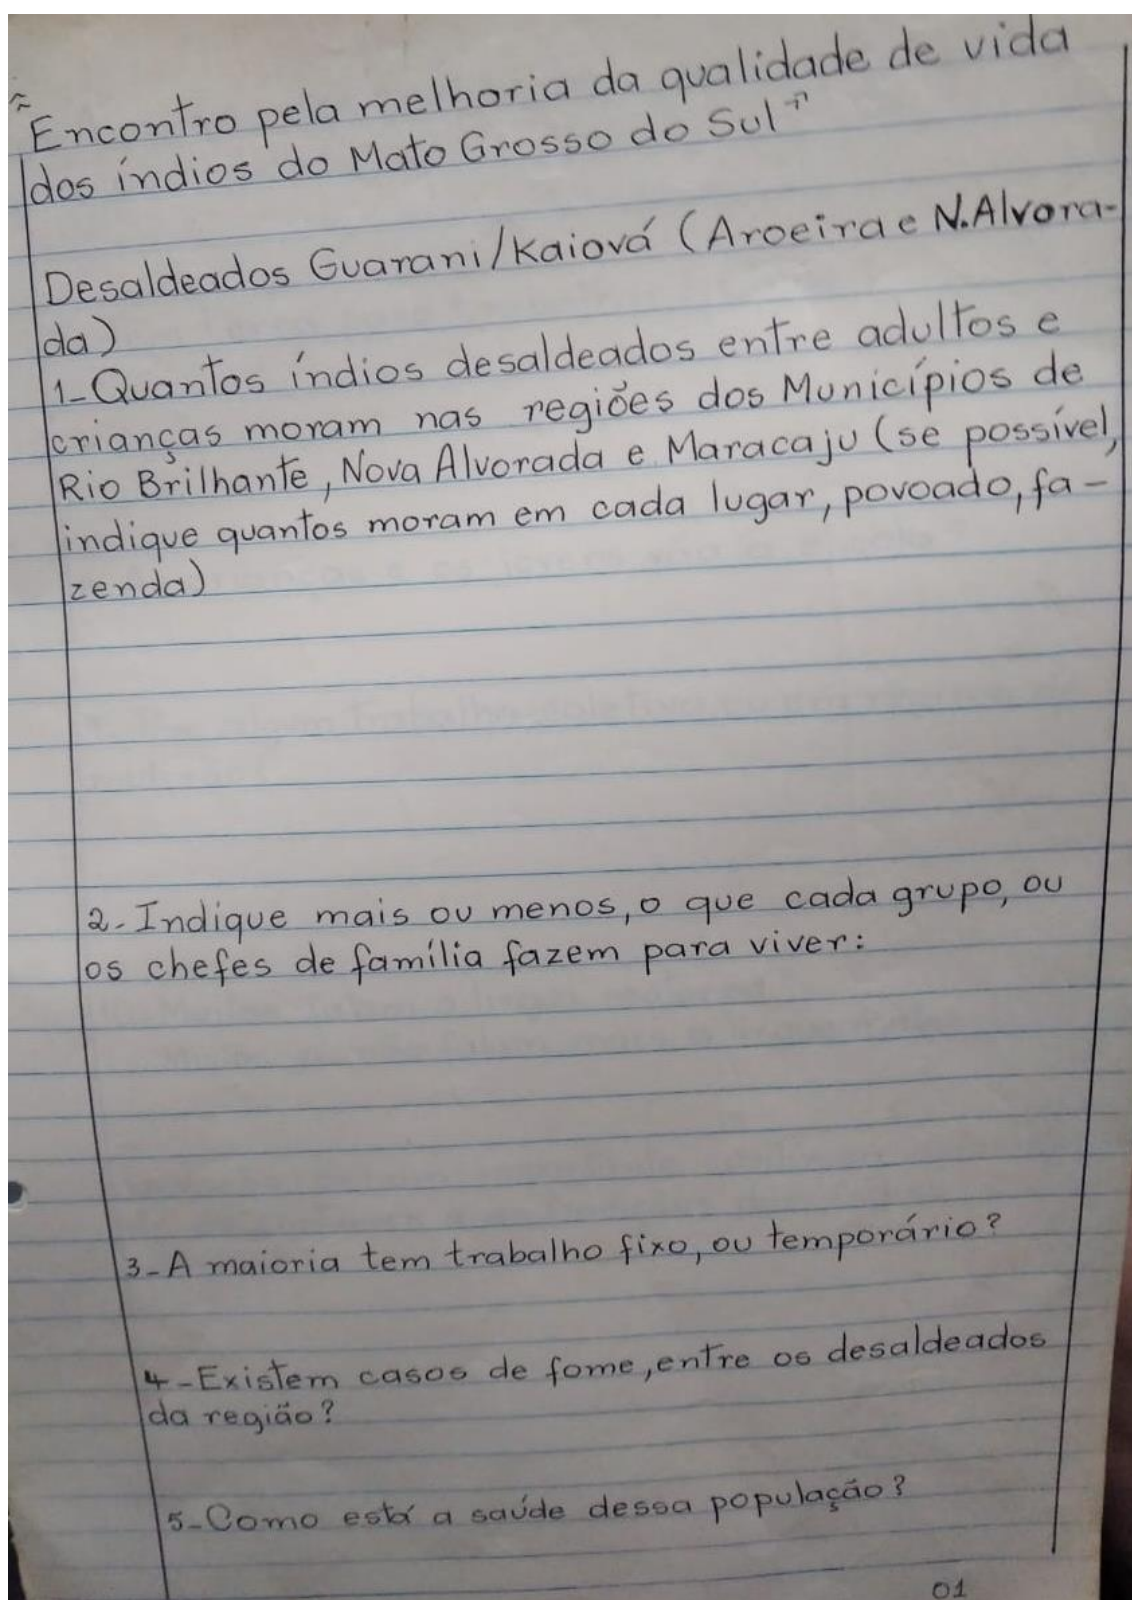 "Encontro pela melhoria da qualidade de vida
dos índios do Mato Grosso do Sul"
Desaldeados Guarani/Kaiová (Aroeira e N.Alvora-
da)
1-Quantos índios desaldeados entre adultos e
crianças moram nas regiões dos Municípios de
Rio Brilhante, Nova Alvorada e Maracaju (se possível,
indique quantos moram em cada lugar, povoado, fa-
zenda)
2-Indique mais ou menos, o que cada grupo, ou
os chefes de família fazem para viver:
3-A maioria tem trabalho fixo, ou temporário?
4-Existem casos de fome, entre os desaldeados
da região?
5-Como está a saúde dessa população?
01